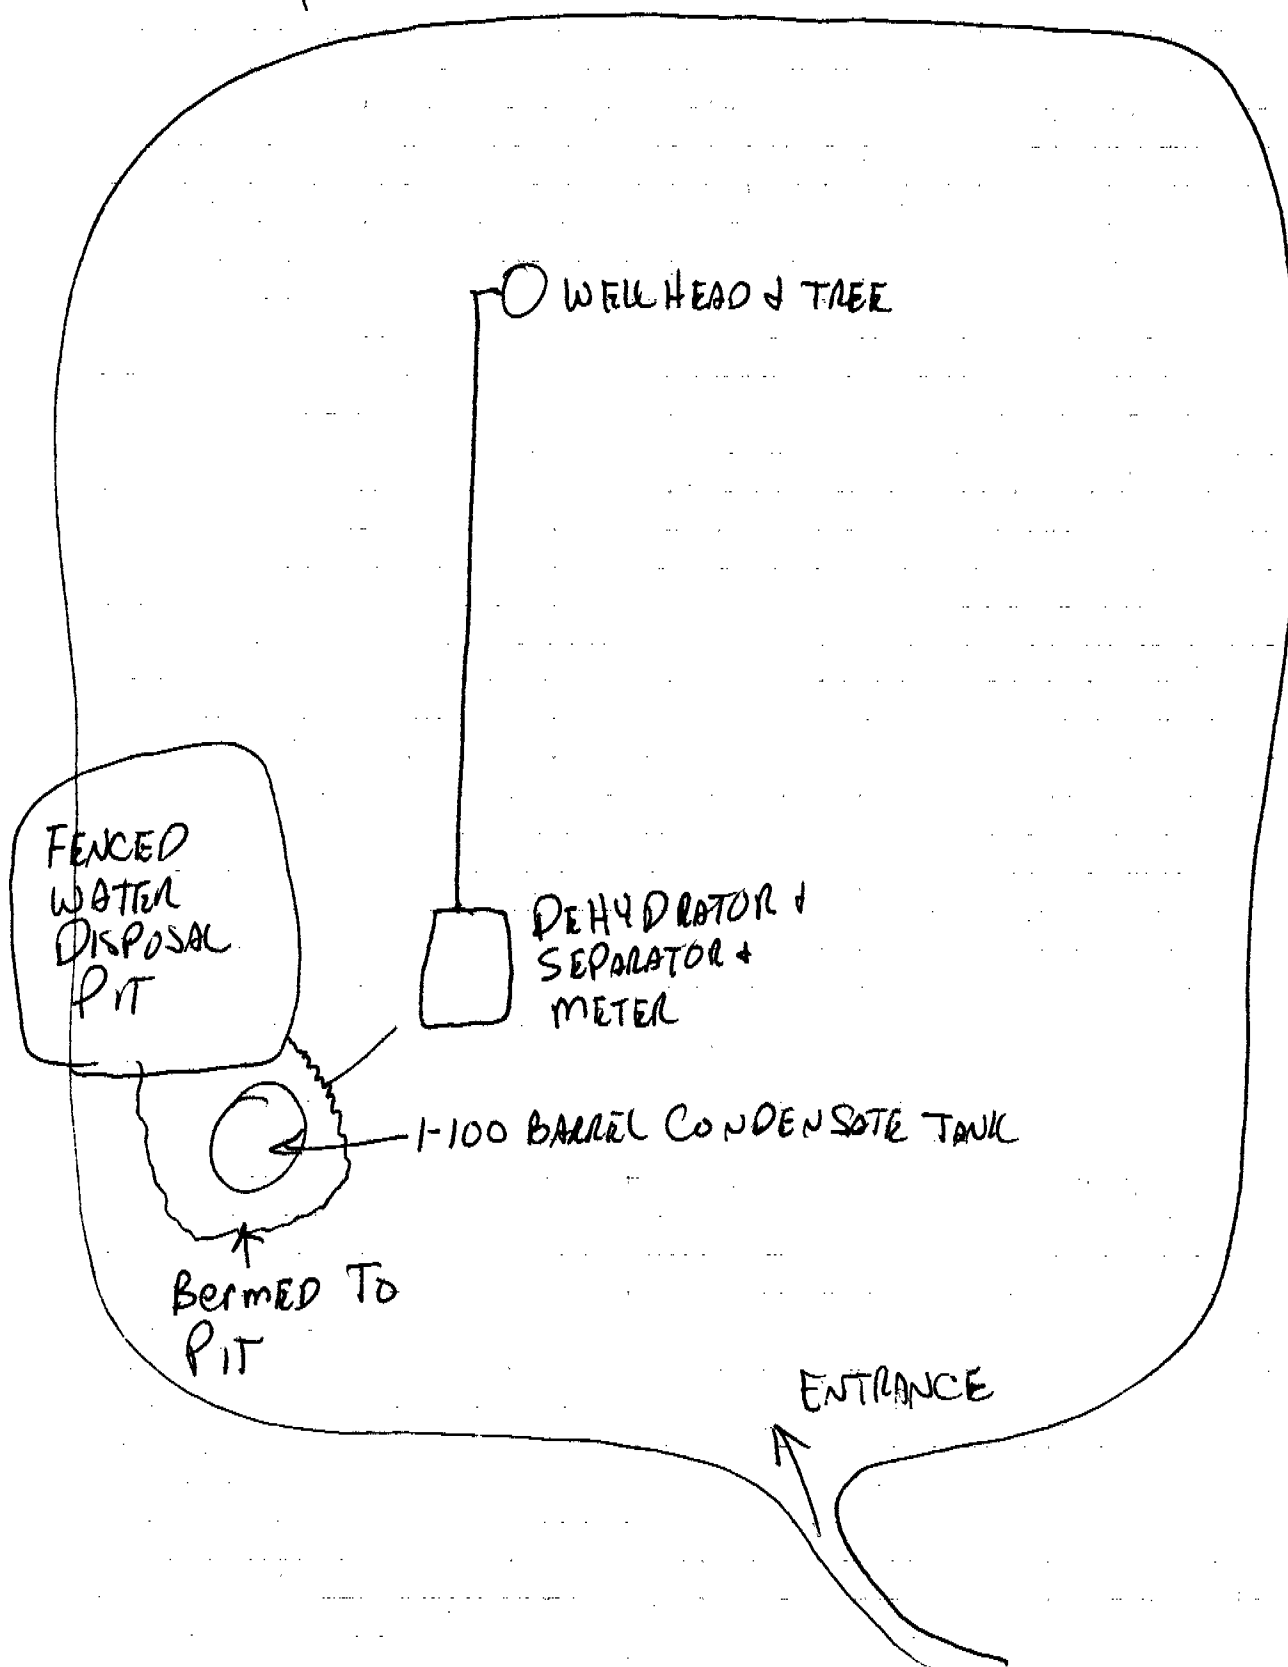 WELLHEAD & TREE
FENCED
WATER
DISPOSAL
PIT
DEHYDRATOR &
SEPARATOR &
METER
1-100 BARREL CONDENSATE TANK
BermED TO
PIT
ENTRANCE